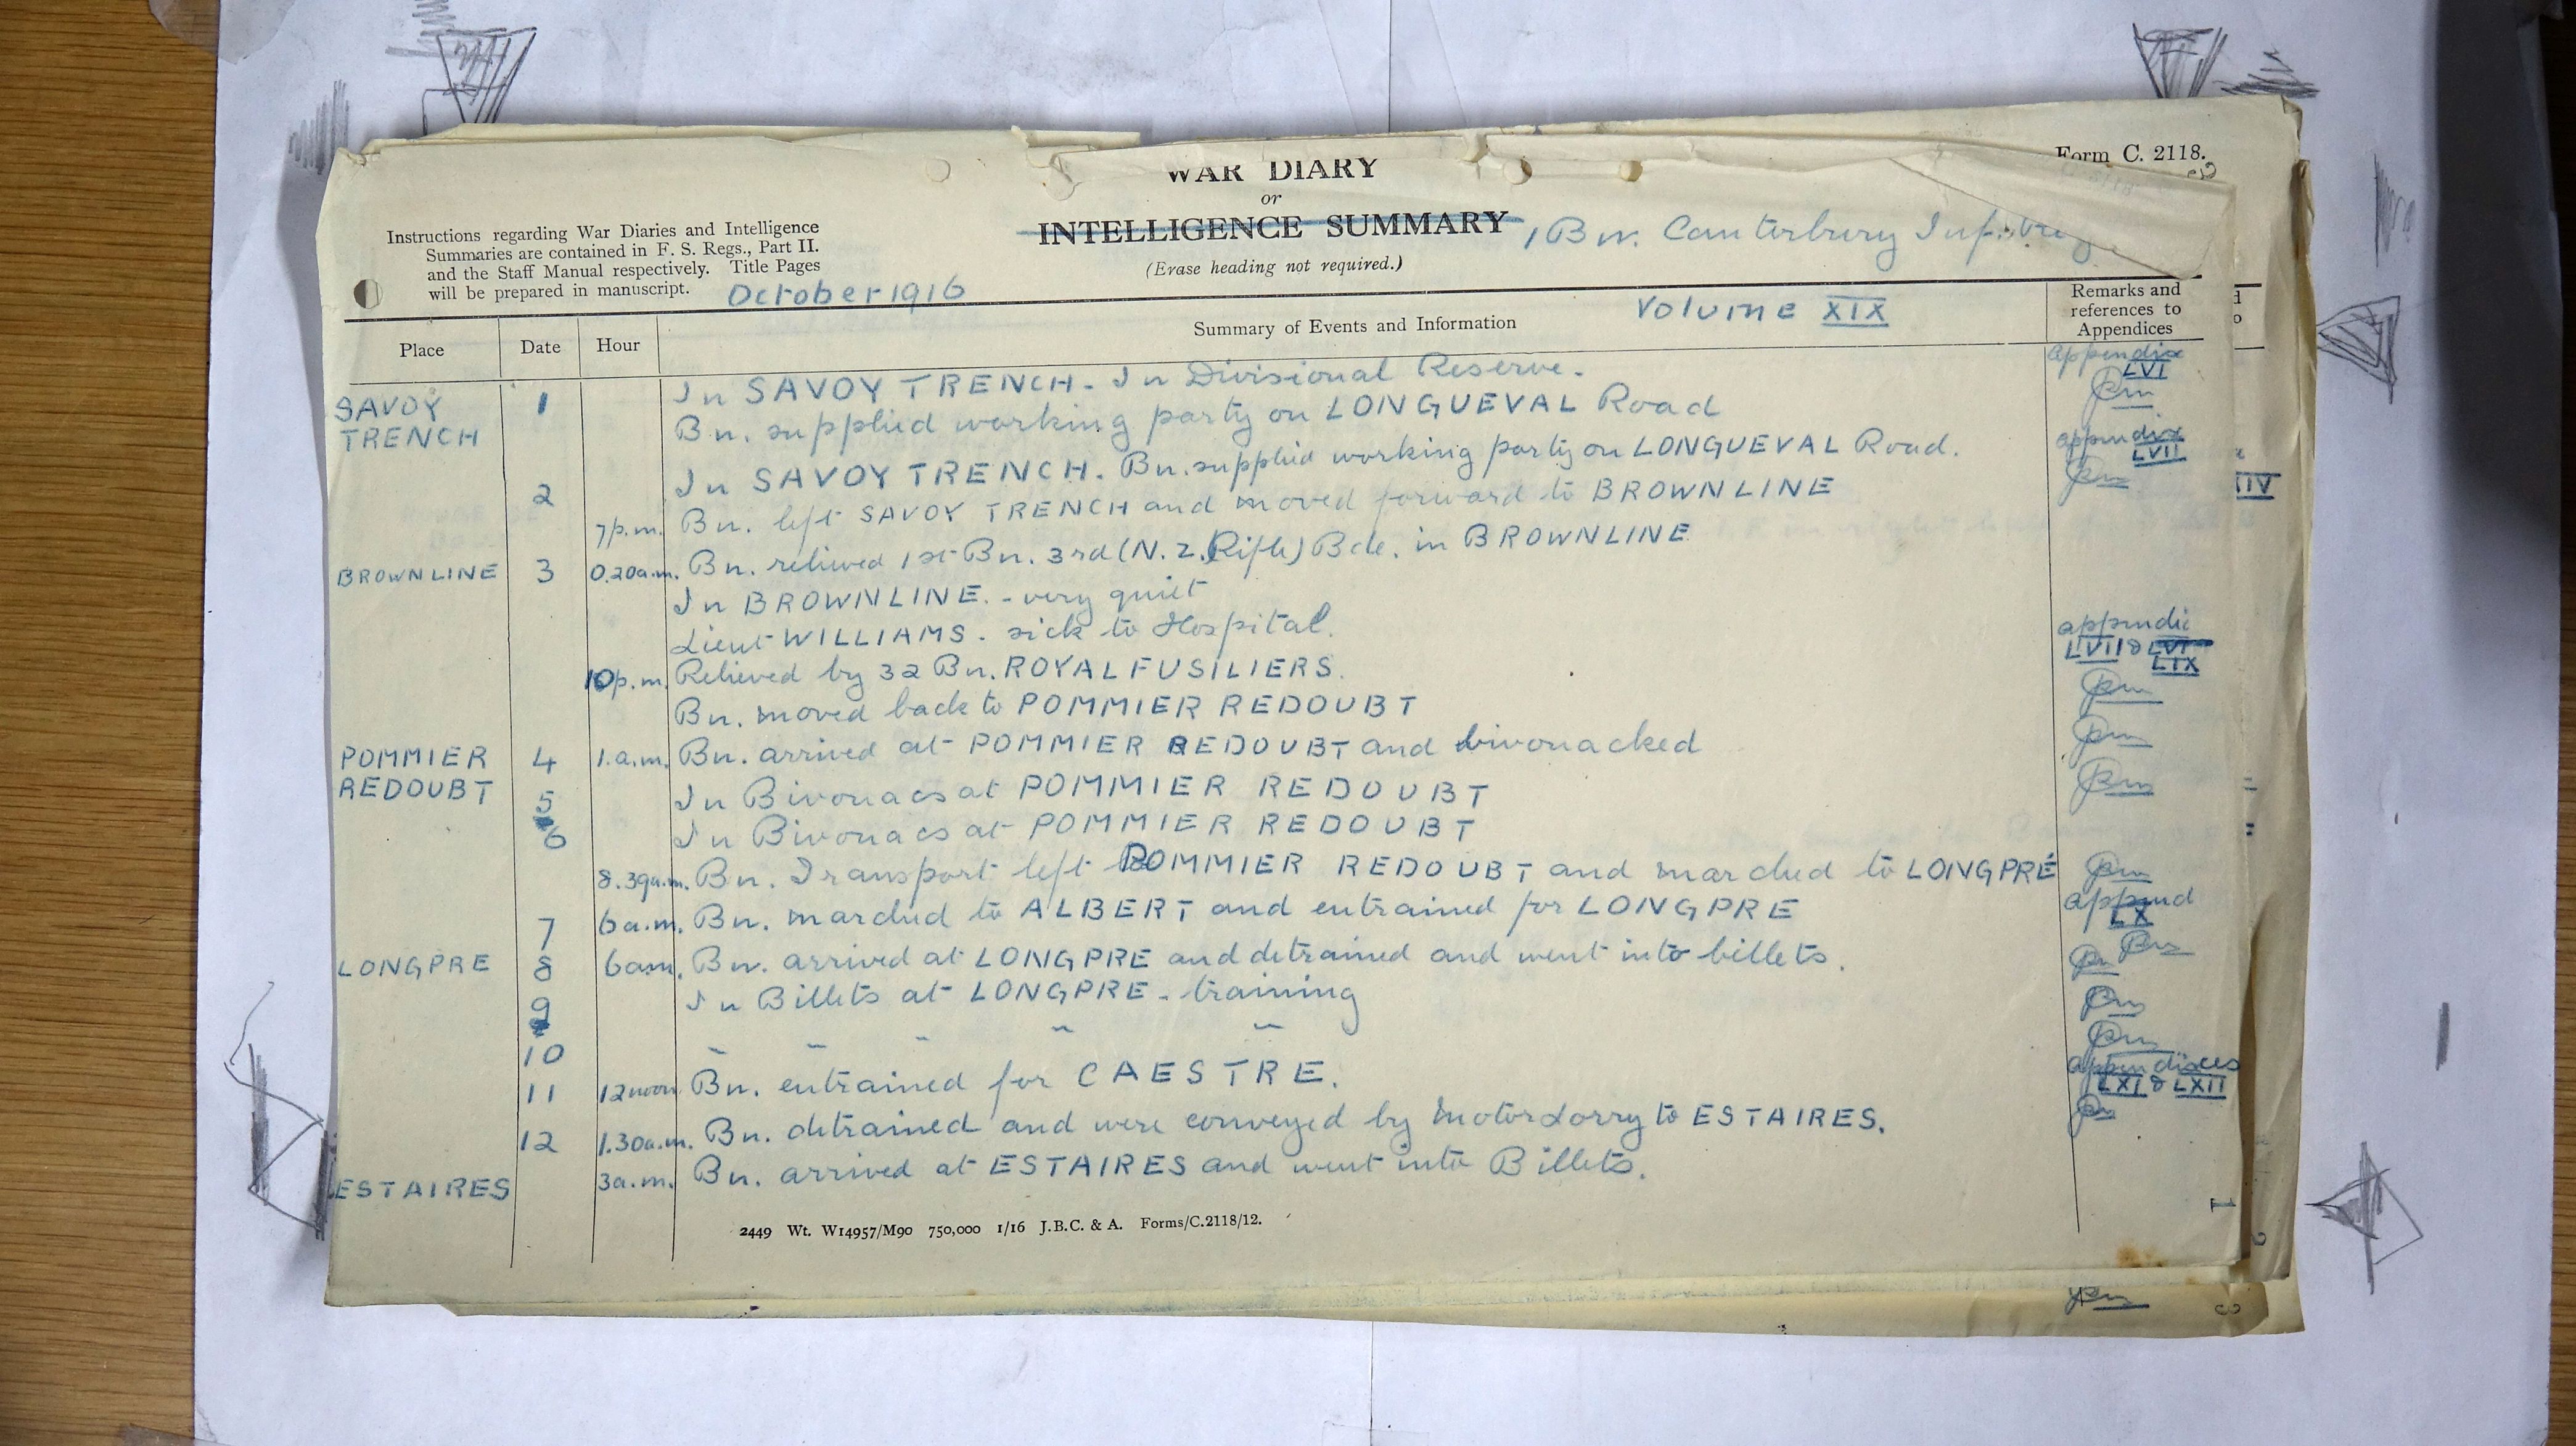 WAR DIARY
Form C. 2118.
or
INTELLIGENCE SUMMARY
1 Bn. Canterbury Infantry
(Erase heading not required.)
Instructions regarding War Diaries and Intelligence
Summaries are contained in F. S. Regs., Part II.
and the Staff Manual respectively. Title Pages
will be prepared in manuscript.
October 1916
Volume XIX
Place Date Hour Summary of Events and Information Remarks and
references to
Appendices
SAVOY 1 In SAVOY TRENCH - In Divisional Reserve. appendix
TRENCH Bn. supplied working party on LONGUEVAL Road LVI
2 In SAVOY TRENCH. Bn. supplied working party on LONGUEVAL Road. appendix LVII
7p.m. Bn. left SAVOY TRENCH and moved forward to BROWN LINE
BROWN LINE 3 0.20a.m. Bn. relieved 1st Bn. 3rd (N.Z. Rifle) Bde. in BROWN LINE
In BROWN LINE. - very quiet
Lieut WILLIAMS. sick to Hospital. appendic
LVIII & LVI LIX
10p.m. Relieved by 32 Bn. ROYAL FUSILIERS.
Bn. moved back to POMMIER REDOUBT
POMMIER 4 1.a.m. Bn. arrived at POMMIER REDOUBT and bivouacked
REDOUBT 5 In Bivouacs at POMMIER REDOUBT
6 In Bivouacs at POMMIER REDOUBT
8.30a.m. Bn. Transport left POMMIER REDOUBT and marched to LONGPRÉ
7 6a.m. Bn. marched to ALBERT and entrained for LONGPRE append LX
LONGPRE 8 6am. Bn. arrived at LONGPRE and detrained and went into billets.
9 In Billets at LONGPRE - training
10 " " " " "
11 12noon Bn. entrained for CAESTRE. appendixes
LXI & LXII
12 1.30a.m. Bn. detrained and were conveyed by Motor Lorry to ESTAIRES.
ESTAIRES 3a.m. Bn. arrived at ESTAIRES and went into Billets.
2449 Wt. W14957/M90 750,000 1/16 J.B.C. & A. Forms/C.2118/12.